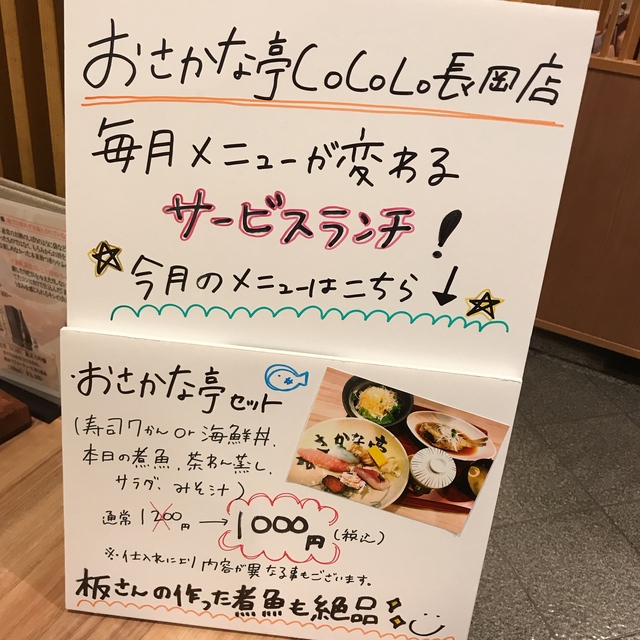 おさかな亭CoCoLo長岡店
毎月メニューが変わる
サービスランチ!
☆今月のメニューはこちら↓☆
・おさかな亭セット
(寿司7かんor海鮮丼、
本日の煮魚、茶わん蒸し、
サラダ、みそ汁)
通常1200円→1000円(税込)
※仕入れにより内容が異なる事もございます。
板さんの作った煮魚も絶品!
さかな亭